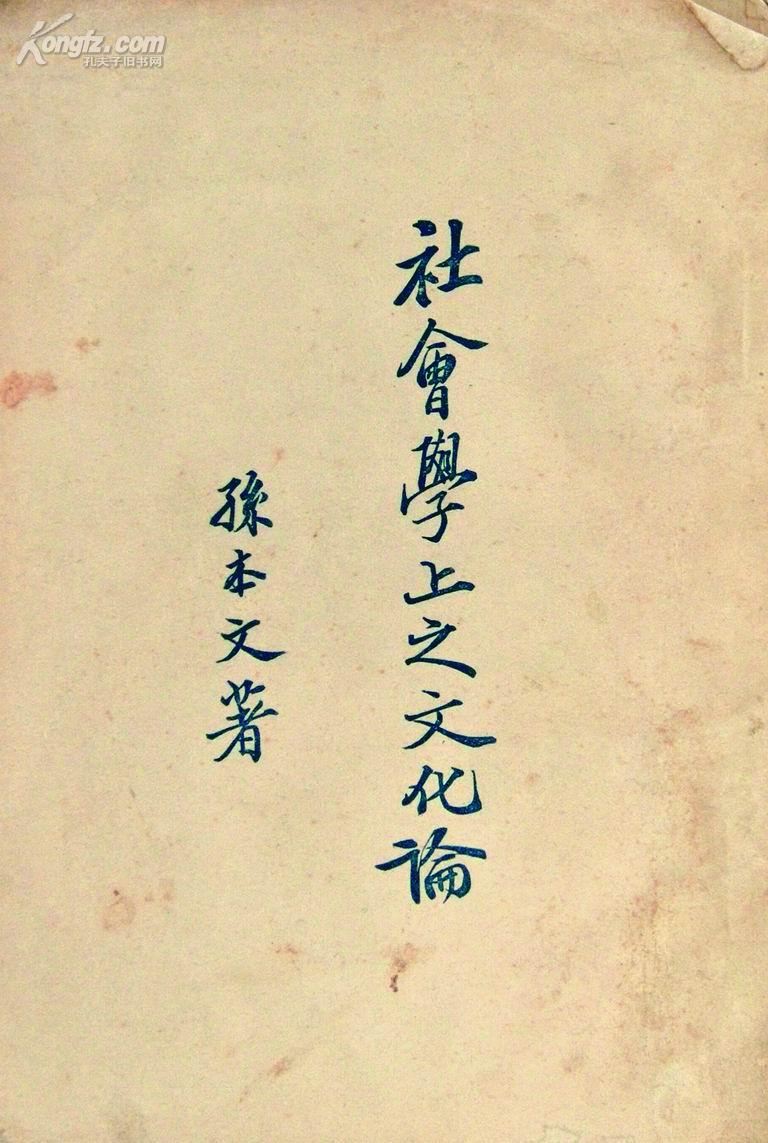 Kongfz.com
孔夫子旧书网
社會學上之文化論
孫本文著